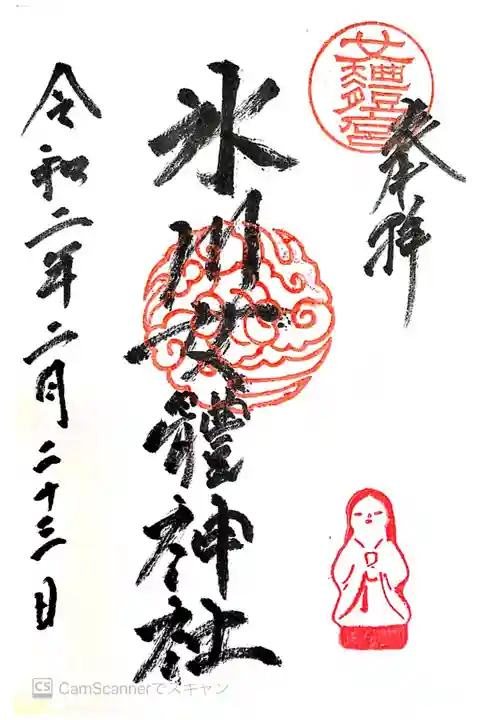 奉拝
氷川女體神社
令和二年二月二十三日
CamScannerでスキャン